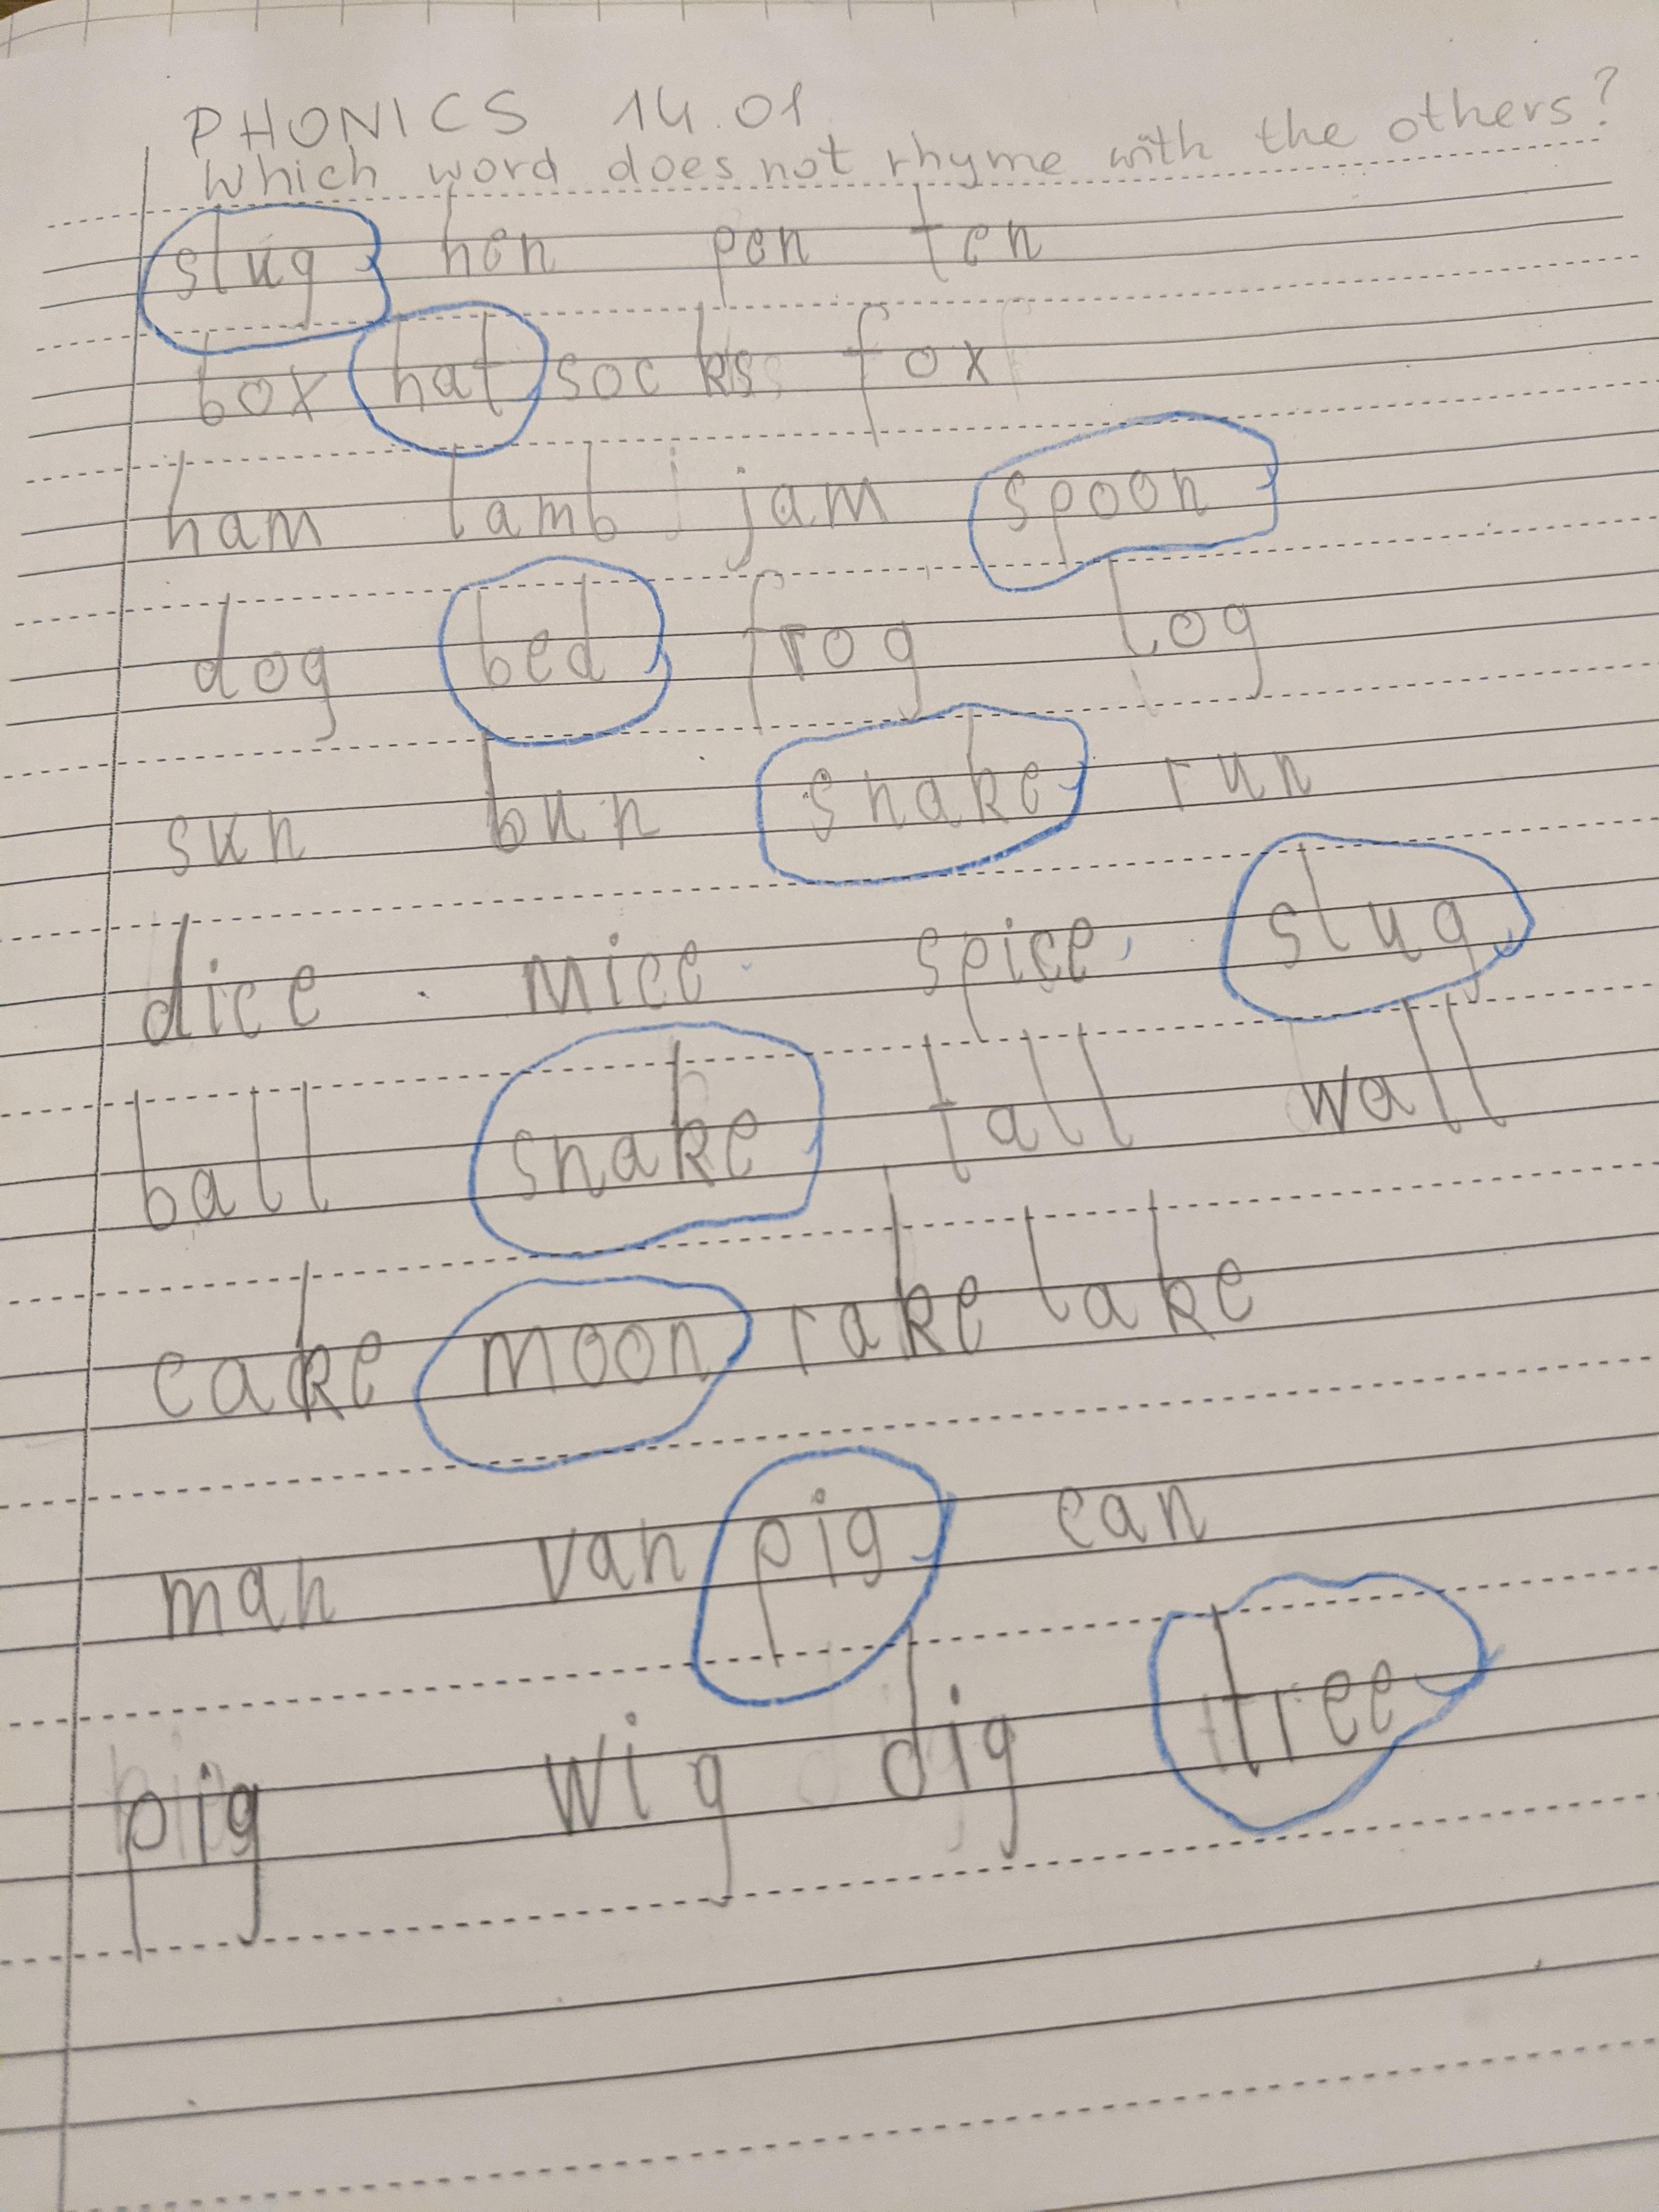 PHONICS 14.01
Which word does not rhyme with the others?
slug hen pen ten
box hat socks fox
ham lamb jam spoon
dog bed frog log
sun bun snake run
dice mice spice slug
ball snake tall wall
cake moon rake lake
man van pig can
pig wig dig tree